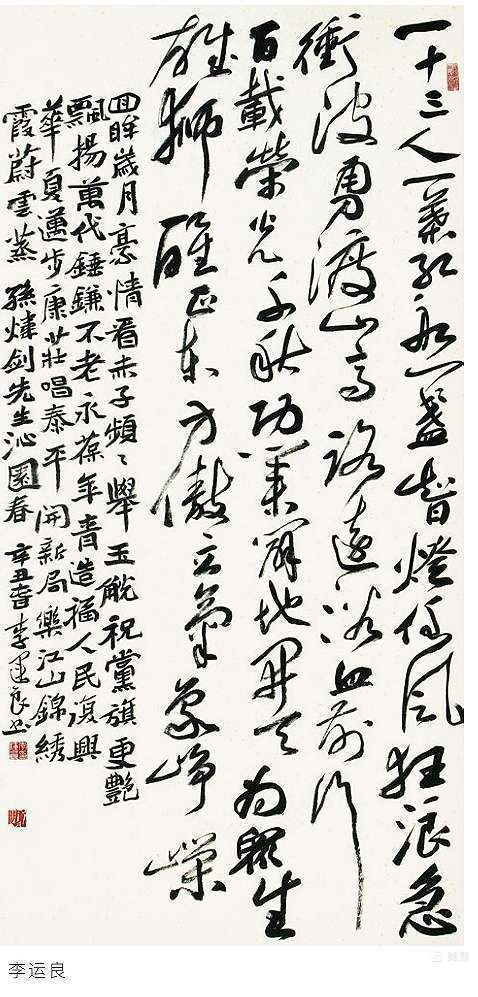 一十三人一葉紅一盞智燈任風狂浪急
衝波勇渡山高路遠浴血前行
百載榮光千秋功業闢地開天為眾生
雄獅醒正東方傲立氣象崢嶸
回眸歲月豪情看赤子頻〻舉玉觥祝黨旗更艷
飄揚萬代錘鐮不老永葆年青造福人民復興
華夏邁步康莊唱泰平開新局樂江山錦綉
霞蔚雲蒸 孫煒劍先生沁園春 辛丑春李運良書
李运良